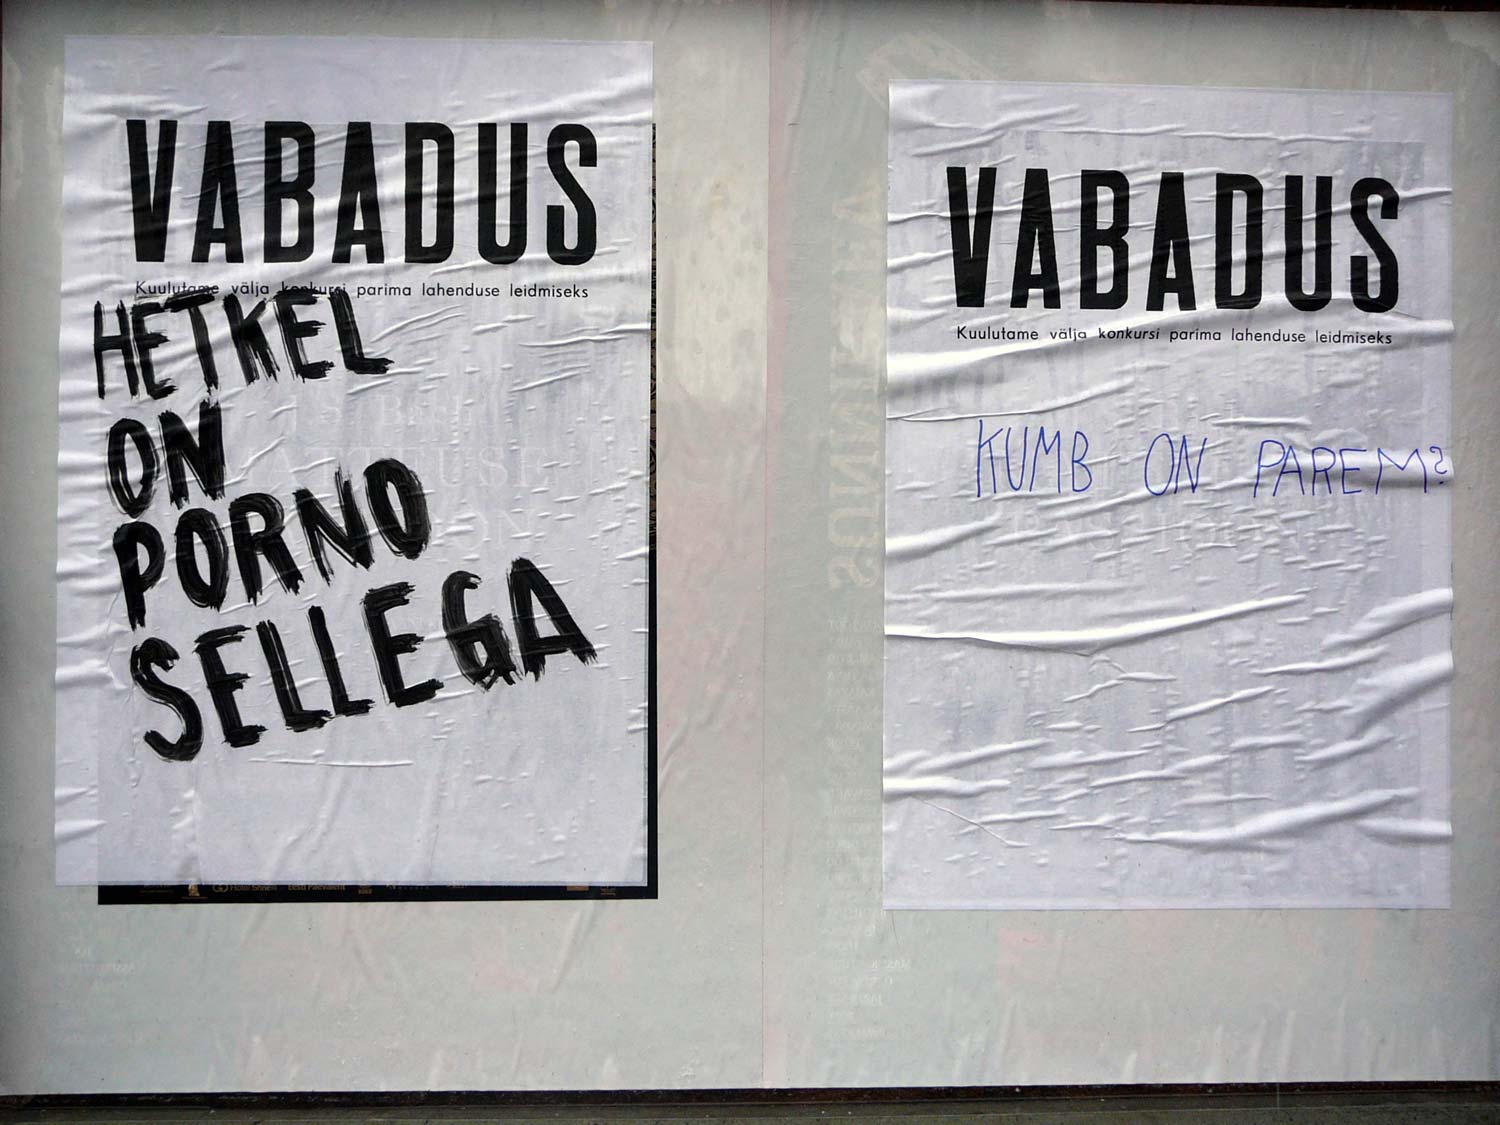 VABADUS
Kuulutame välja konkursi parima lahenduse leidmiseks
HETKEL
ON
PORNO
SELLEGA
Hotel Shnelli Eesti Päevaleht
VABADUS
Kuulutame välja konkursi parima lahenduse leidmiseks
KUMB ON PAREM?